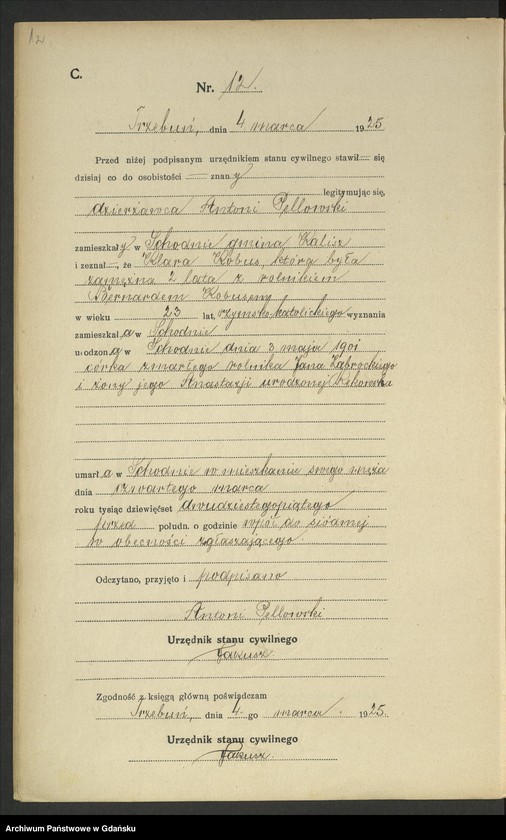 12
C.
Nr. 12.
Trzebuń, dnia 4 marca 1925
Przed niżej podpisanym urzędnikiem stanu cywilnego stawił się
dzisiaj co do osobistości znany
legitymując się,
dzierżawca Antoni Pellowski
zamieszkały w Schodnie gmina Kalisz
i zeznał, że Klara Kobus, która była
zamężna 2 lata z rolnikiem
Bernardem Kobusem
w wieku 23 lat, rzymsko-katolickiego wyznania
zamieszkała w Schodnie
urodzona w Schodnie dnia 3 maja 1901
córka zmarłego rolnika Jana Żabrockiego
i żony jego Anastazji urodzonej
umarła w Schodnie w mieszkanie swego męża
dnia czwartego marca
roku tysiąc dziewięćset dwudziestegopiątego
przed połudn. o godzinie wpół do siódmej
w obecności zgłaszającego.
Odczytano, przyjęto i podpisano
Antoni Pellowski
Urzędnik stanu cywilnego
Zgodność z księgą główną poświadczam
Trzebuń, dnia 4 go marca 1925.
Urzędnik stanu cywilnego
Archiwum Państwowe w Gdańsku